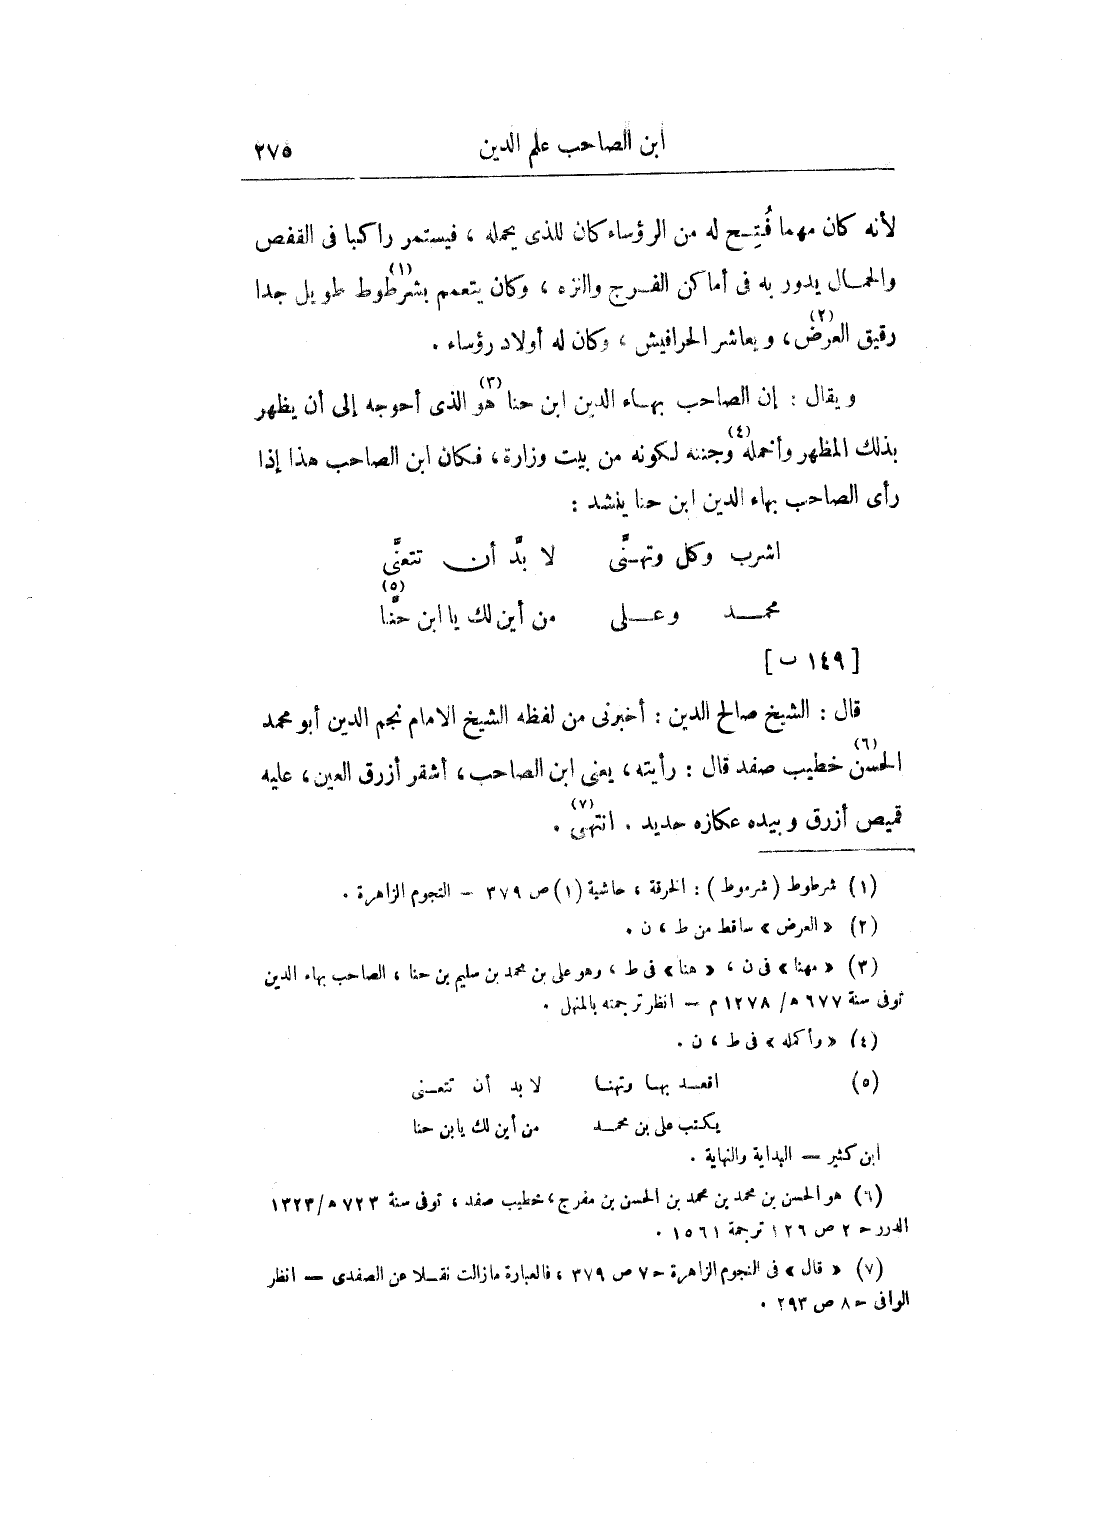 ابن الصاحب علم الدين ٢٧٥
لأنه كان مهما فُتِح له من الرؤساء كان للذى يحمله ، فيستمر راكبا فى القفص
والحمال يدور به فى أماكن الفرج والنزه ، وكان يتعمم بشرطوط (١) طويل جدا
رقيق العرض (٢) ، ويعاشر الحرافيش ، وكان له أولاد رؤساء .
ويقال : إن الصاحب بهاء الدين ابن حنا (٣) هو الذى أحوجه إلى أن يظهر
بذلك المظهر وأخمله (٤) وجننه لكونه من بيت وزارة ، فكان ابن الصاحب هذا إذا
رأى الصاحب بهاء الدين ابن حنا ينشد :
اشرب وكل وتهنَّى لا بدَّ أن تتعنَّى
محمد وعلى من أين لك يا ابن حنَّا (٥)
[ ١٤٩ ب ]
قال : الشيخ صالح الدين : أخبرنى من لفظه الشيخ الامام نجم الدين أبو محمد
الحسن (٦) خطيب صفد قال : رأيته ، يعنى ابن الصاحب ، أشقر أزرق العين ، عليه
قميص أزرق وبيده عكازه حديد . انتهى (٧) .
(١) شرطوط ( شرموط ) : الخرقة ، حاشية (١) ص ٣٧٩ – النجوم الزاهرة .
(٢) « العرض » ساقط من ط ، ن .
(٣) « مهنا » فى ن ، « هنا » فى ط ، وهو على بن محمد بن سليم بن حنا ، الصاحب بهاء الدين
توفى سنة ٦٧٧ ه‍/ ١٢٧٨ م – انظر ترجمته بالمنهل .
(٤) « وأكمله » فى ط ، ن .
(٥) اقعد بها وتهنا لا بد أن تتعنى
يكتب على بن محمد من أين لك يابن حنا
ابن كثير – البداية والنهاية .
(٦) هو الحسن بن محمد بن محمد بن الحسن بن مفرج ، خطيب صفد ، توفى سنة ٧٢٣ ه‍/ ١٣٢٣
الدرر ح‍ ٢ ص ١٢٦ ترجمة ١٥٦١ .
(٧) « قال » فى النجوم الزاهرة ح‍ ٧ ص ٣٧٩ ، فالعبارة مازالت نقلا عن الصفدى – انظر
الوافى ح‍ ٨ ص ٢٩٣ .